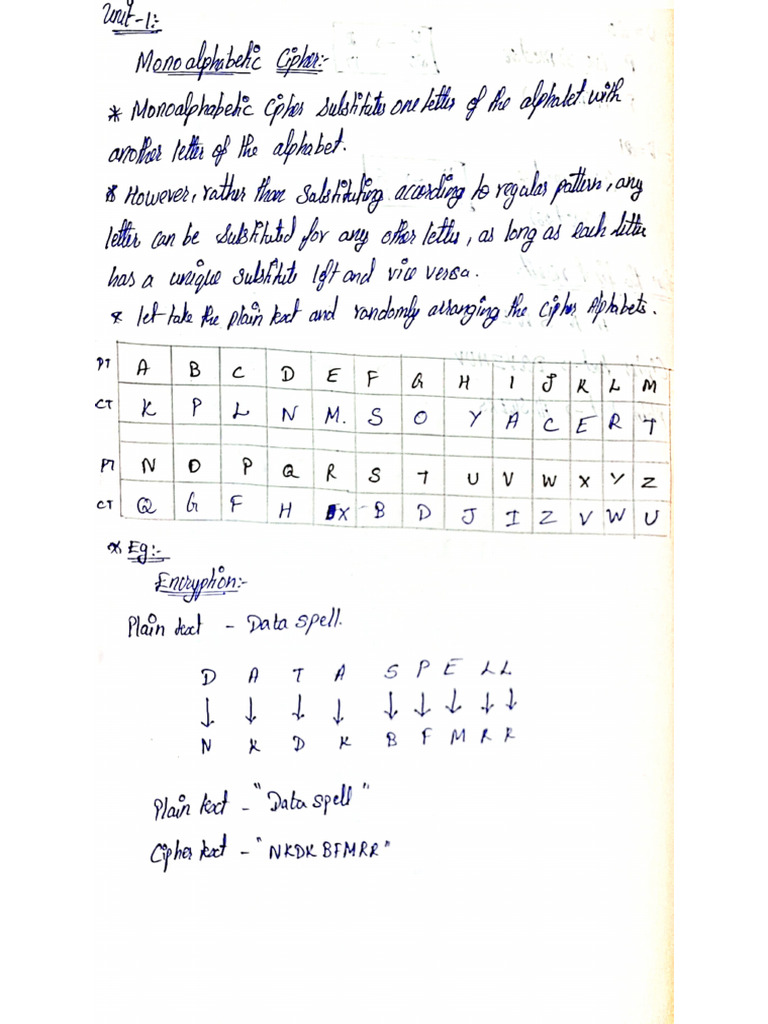 Unit-1:-
Monoalphabetic Cipher:-
* Monoalphabetic Cipher Substitutes one letter of the alphabet with
another letter of the alphabet.
* However, rather than Substituting according to regular pattern, any
letter can be Substituted for any other letter, as long as each letter
has a unique substitute left and vice versa.
* let take the plain text and randomly arranging the Cipher Alphabets.
PT A B C D E F G H I J K L M
CT K P L N M. S O Y A C E R T
PT N O P Q R S T U V W X Y Z
CT Q G F H X B D J I Z V W U
* Eg:-
Encryption:-
Plain text - Data spell.
D A T A S P E L L
↓ ↓ ↓ ↓ ↓ ↓ ↓ ↓ ↓
N K D K B F M R R
Plain text - "Data spell"
Cipher text - "NKDK BFMRR"